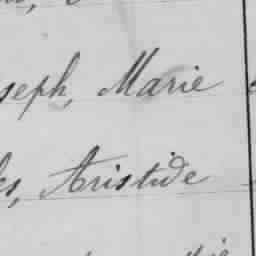 seph, Marie
es, Aristide